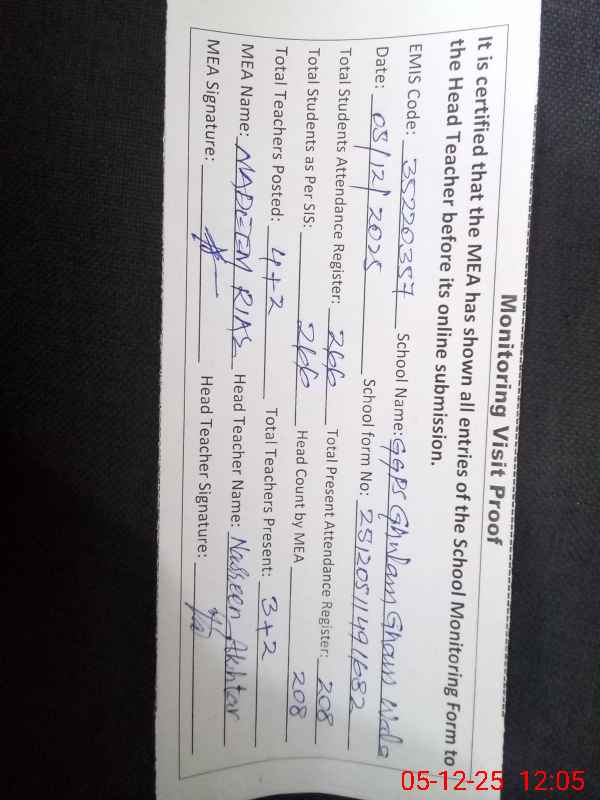 Monitoring Visit Proof
It is certified that the MEA has shown all entries of the School Monitoring Form to
the Head Teacher before its online submission.
EMIS Code: 35220357 School Name: GGPS Ghulam Ghaus Wala
Date: 05/12/2025 School form No: 25120511491682
Total Students Attendance Register: 266 Total Present Attendance Register: 208
Total Students as Per SIS: 266 Head Count by MEA 208
Total Teachers Posted: 4+2 Total Teachers Present: 3+2
MEA Name: NADEEM RIAS Head Teacher Name: Nasreen Akhtar
MEA Signature: Head Teacher Signature:
05-12-25 12:05